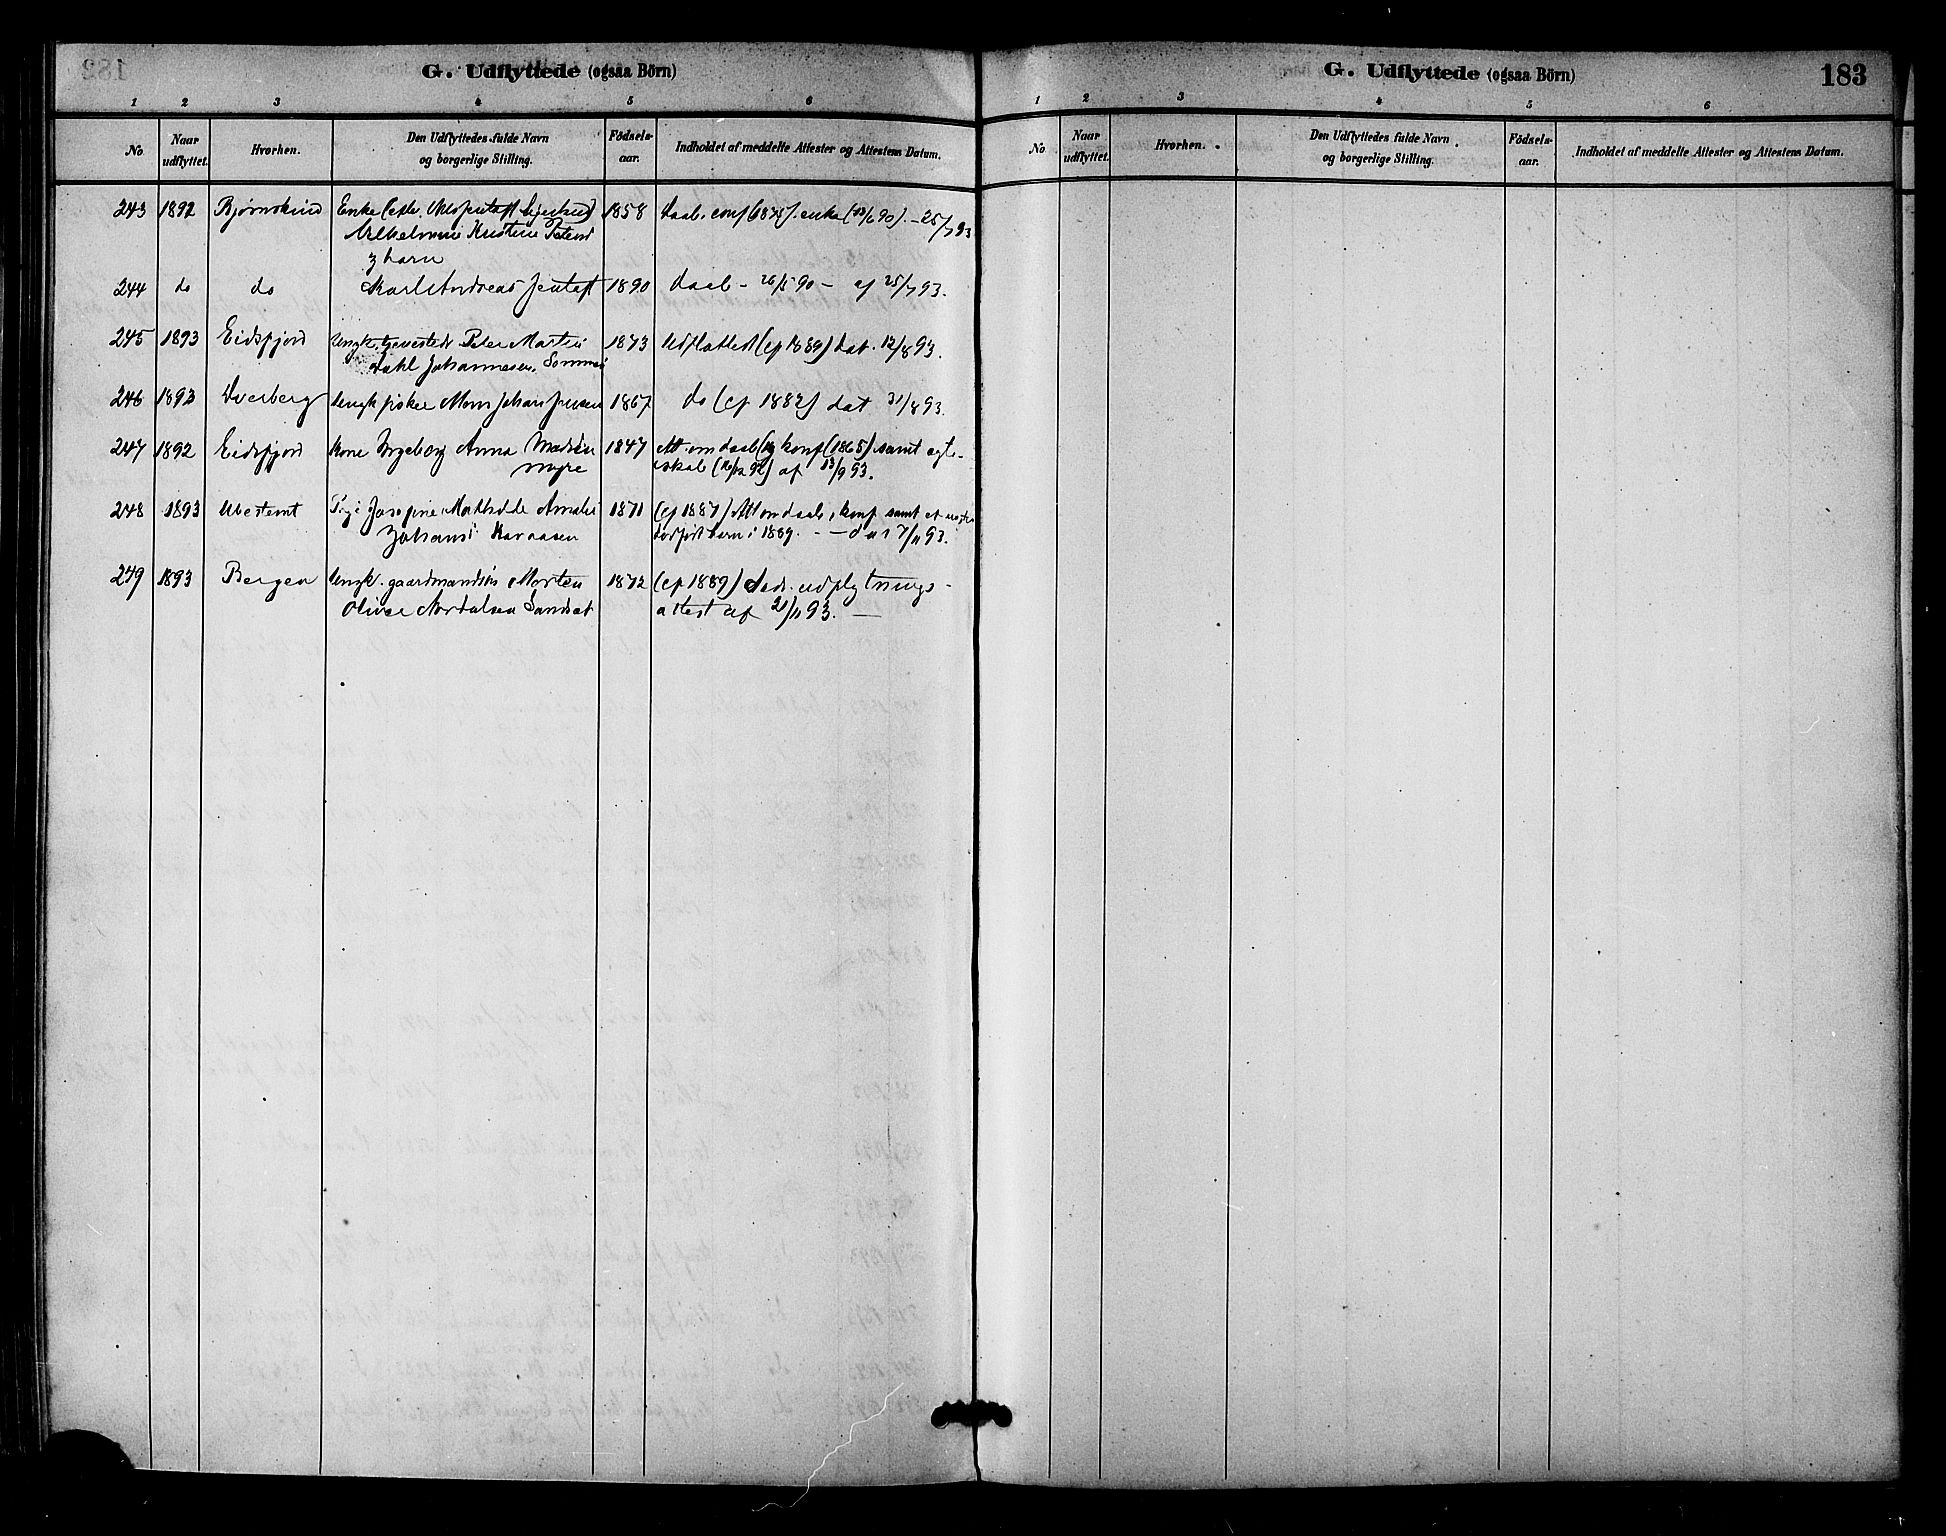 182
G. Udflyttede (ogsaa Börn)
1 2 3 4 5 6
No. Naar udflyttet. Hvorhen. Den Udflyttedes fulde Navn og borgerlige Stilling. Födsels-aar. Indholdet af meddelte Attester og Attestens Datum.
243 1892 Bjørnskind Enke 1858 daab, conf (1875). enke (13/6 90). – 25/7 93
Vilhelmine Kristine
3 barn
244 do do Karl Andreas Jentoft 1890 daab – 26/5 90 – af 25/7 93.
245 1893 Eidsfjord Ungk. Peter Martin 1873 Udflattest (cf 1889) dat. 12/8 93.
Dahl Johannesen,
246 1893 Dverberg Ungk fisker Mons Johan Jensen 1867 do (cf 1882) dat 31/8 93.
247 1892 Eidsfjord Kone Ingeborg Anna Madsen 1847 Att. om daab konf (1865) samt egte-
Myre skab af 13/9 93.
248 1893 Ubestemt Pige Josefine Mathilde Amalie 1871 (cf 1887) Att om daab, konf samt et
Johansd. dødfødt barn i 1889. – – 7/11 93.
249 1893 Bergen Ungk. gaardmandsøn Morten 1872 (cf 1889) udflytnings-
Oliver Sandset attest af 21/11 93. —
G. Udflyttede (ogsaa Börn)
183
1 2 3 4 5 6
No. Naar udflyttet. Hvorhen. Den Udflyttedes fulde Navn og borgerlige Stilling. Födsels-aar. Indholdet af meddelte Attester og Attestens Datum.